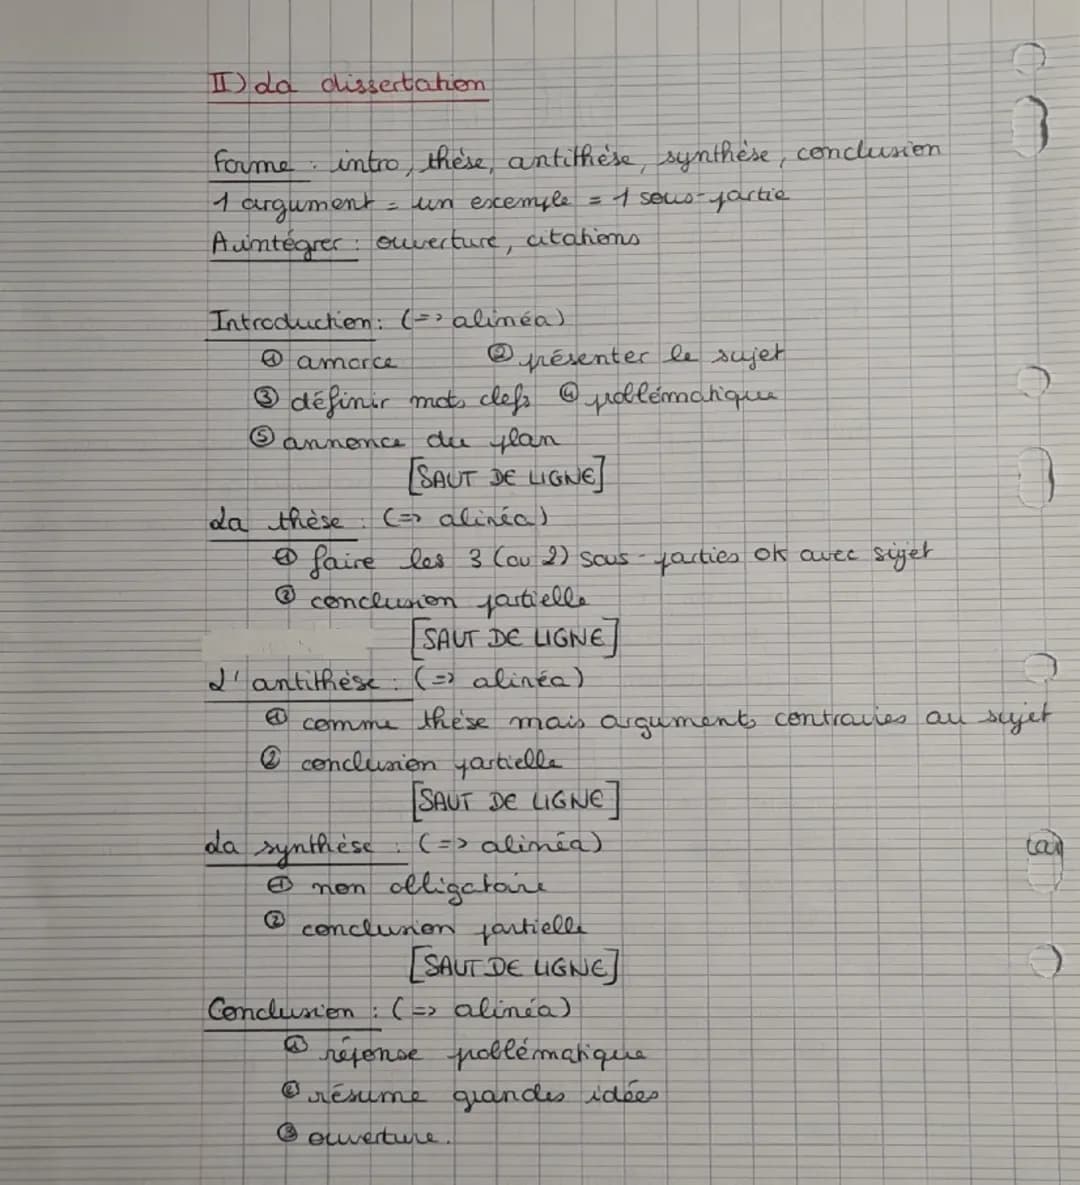 II) La dissertation
Forme : intro, thèse, antithèse, synthèse, conclusion
1 argument = un exemple = 1 sous-partie
A intégrer : ouverture, citations
Introduction : (=> alinéa)
① amorce ② présenter le sujet
③ définir mots clefs ④ problématique
⑤ annonce du plan
[SAUT DE LIGNE]
La thèse : (=> alinéa)
① faire les 3 (ou 2) sous-parties ok avec sujet
② conclusion partielle
[SAUT DE LIGNE]
L'antithèse : (=> alinéa)
① comme thèse mais arguments contraires au sujet
② conclusion partielle
[SAUT DE LIGNE]
La synthèse : (=> alinéa)
① non obligatoire
② conclusion partielle
[SAUT DE LIGNE]
Conclusion : (=> alinéa)
① réponse problématique
② résume grandes idées
③ ouverture.